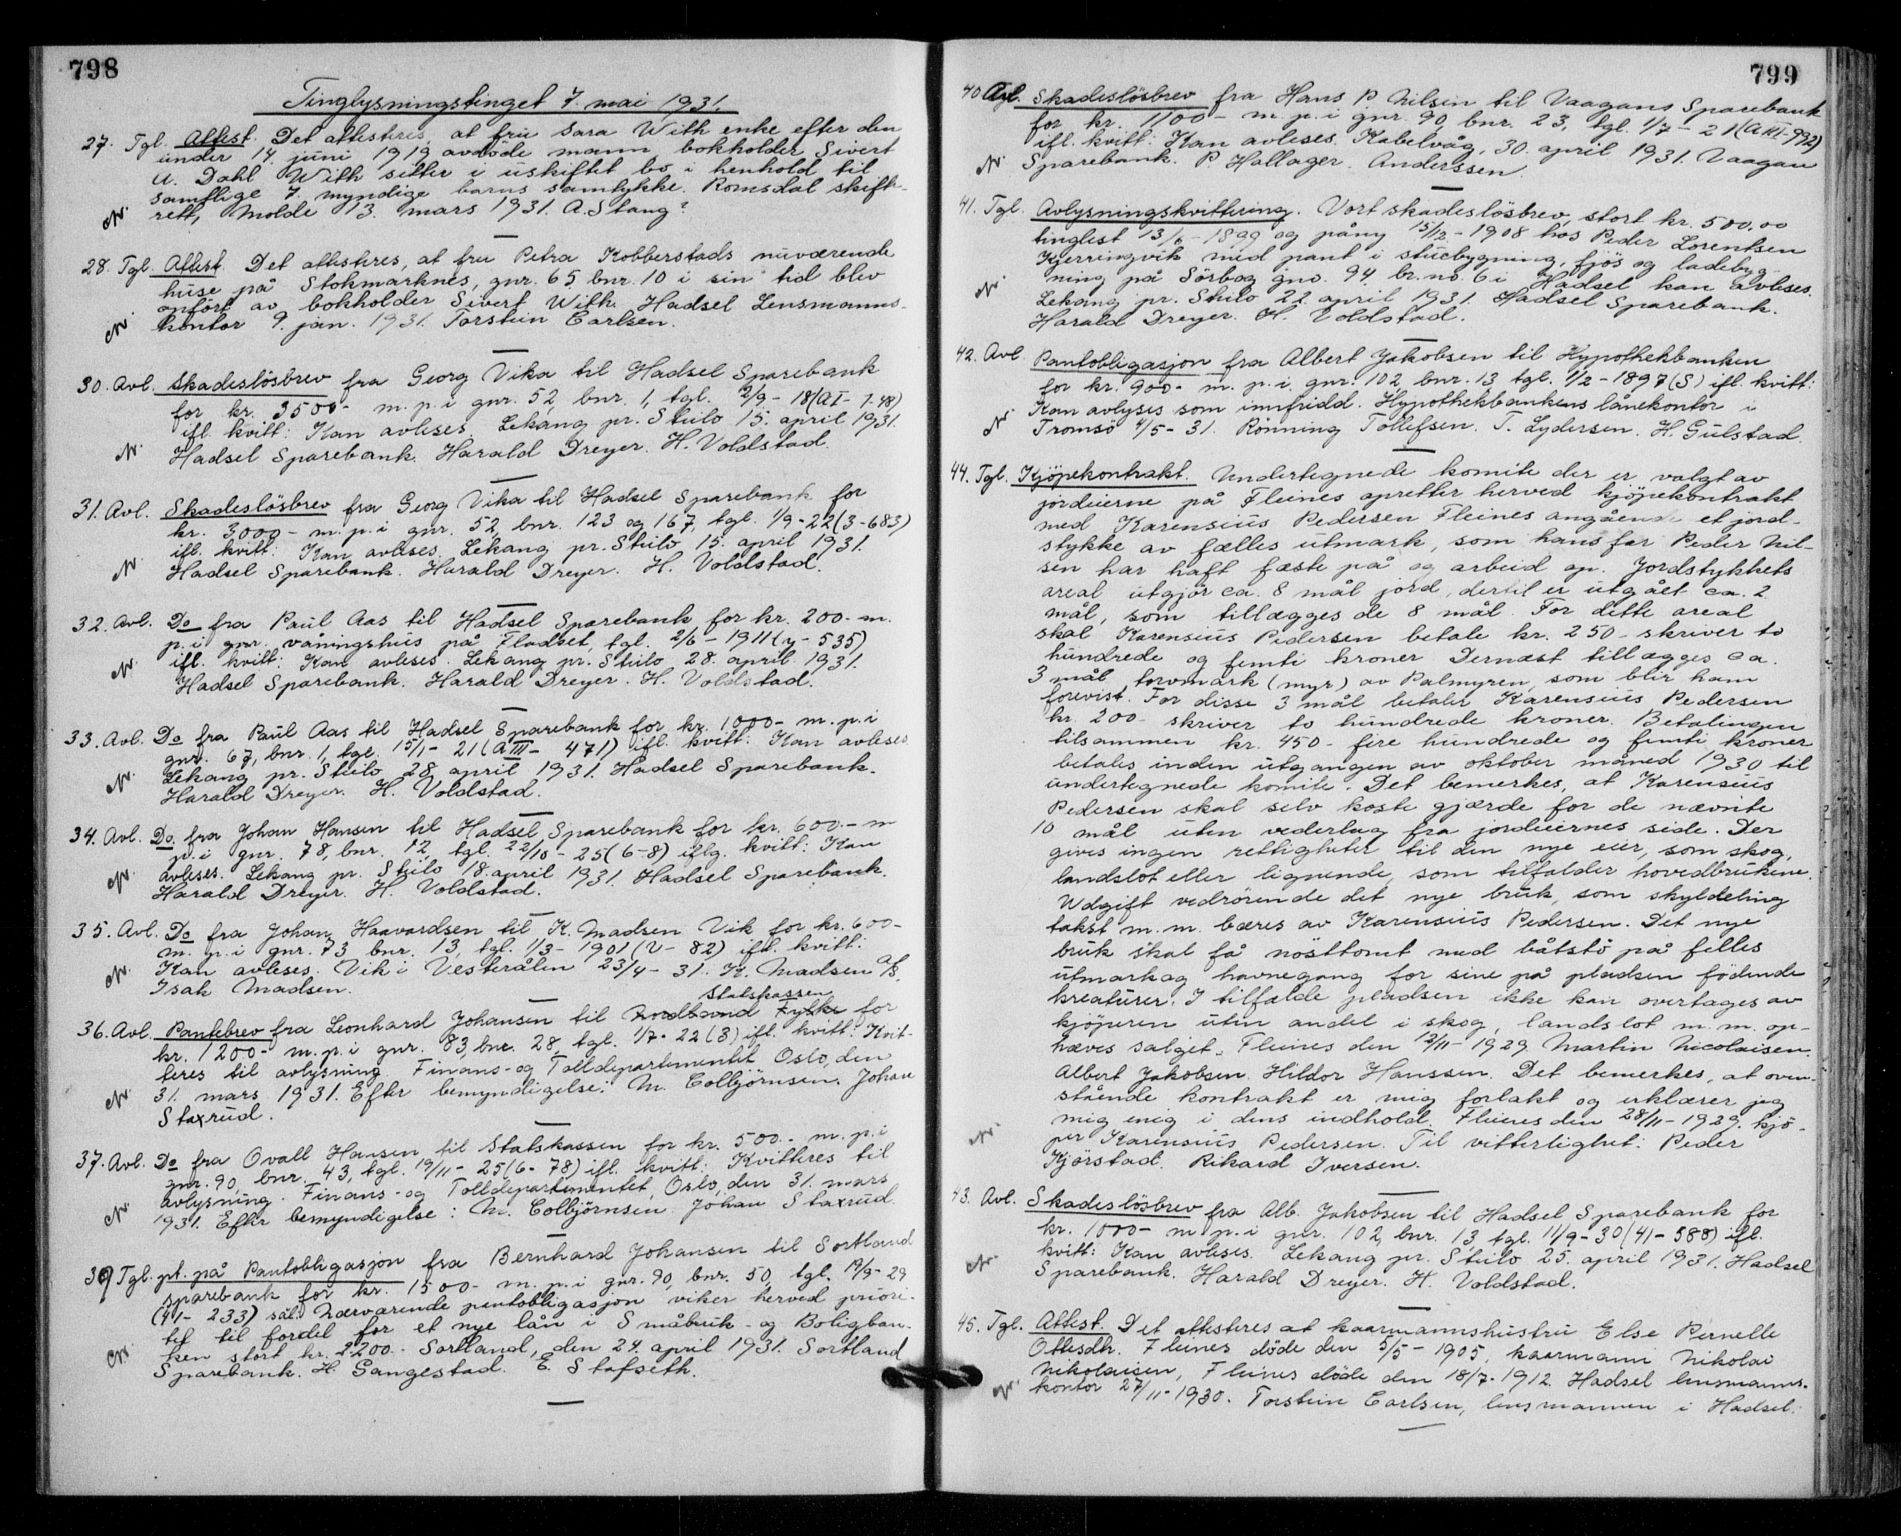 798
Tinglysningstinget 7. mai 1931.
27. Tgl. Attest. Det attesteres, at fru Sara With enke efter den
under 14 juni 1919 avdöde mann bokholder Sivert
U. Dahl With sitter i uskiftet bo i henhold til
samtlige 7 myndige barns samtykke. Romsdal skifte-
rett, Molde 13. mars 1931. A. Stang?
28. Tgl. Attest. Det attesteres, at fru Petra Kobberstads nuværende
huse på Stokmarknes, gnr. 65 bnr. 10 i sin tid blev
opfört av bokholder Sivert With. Hadsel Lensmanns-
kontor 9. jan. 1931. Torstein Carlsen.
30. Avl. Skadeslösbrev fra Georg Vika til Hadsel Sparebank
for kr. 3500- m. p. i gnr. 52, bnr. 1, tgl. 2/9- 18 (A I-
ifl. kvitt: Kan avleses. Lekang pr. Stilo 15. april 1931.
Hadsel Sparebank. Harald Dreyer. H. Voldstad.
31. Avl. Skadeslösbrev fra Georg Vika til Hadsel Sparebank for
kr. 3000- m. p. i gnr. 52, bnr. 123 og 167, tgl. 1/9-22 (3-683)
ifl. kvitt: Kan avleses. Lekang pr. Stilo 15. april 1931.
Hadsel Sparebank. Harald Dreyer. H. Voldstad.
32. Avl. Do fra Paul Aas til Hadsel Sparebank for kr. 200- m.
p. i gnr. våningshus på Fladset, tgl. 2/6- 1911 (y- 535)
ifl. kvitt: Kan avleses. Lekang pr. Stilo 28. april 1931.
Hadsel Sparebank. Harald Dreyer. H. Voldstad.
33. Avl. Do fra Paul Aas til Hadsel Sparebank for kr. 1000- m. p. i
gnr. 67, bnr. 1, tgl. 15/1- 21 (A III- 471) ifl. kvitt: Kan avleses.
Lekang pr. Stilo 28 april 1931. Hadsel Sparebank.
Harald Dreyer. H. Voldstad.
34. Avl. Do. fra Johan Hansen til Hadsel Sparebank for kr. 600- m
p. i gnr. 78, bnr. 12, tgl. 22/10- 25 (6-8) iflg. kvitt: Kan
avleses. Lekang pr. Stilo 18. april 1931. Hadsel Sparebank.
Harald Dreyer. H. Voldstad.
35. Avl. Do fra Johan Haavardsen til K. Madsen Vik for kr. 600-
m. p. i gnr. 73 bnr. 13, tgl. 1/3- 1901 (V- 82) ifl. kvitt:
Kan avleses. Vik i Vesterålen 23/4- 31. K. Madsen A/S
Isak Madsen.
Statskassen
36. Avl. Pantebrev fra Leonhard Johansen til Nordland Fylke for
kr. 1200- m. p. i gnr. 83, bnr. 28, tgl. 1/7- 22 (3) ifl. kvitt: Kvit-
teres til avlysning. Finans- og Tolldepartementet, Oslo, den
31. mars 1931. Efter bemyndigelse: M. Colbjörnsen. Johan
Staxrud.
37. Avl. Do fra Ovall Hansen til Statskassen for kr. 500.- m. p. i
gnr. 90, bnr. 43, tgl. 19/11- 25 (6- 78) ifl. kvitt: Kvitteres til
avlysning. Finans- og Tolldepartementet, Oslo, den 31. mars
1931. Efter bemyndigelse: M. Colbjörnsen. Johan Staxrud
39 Tgl. pt. på Pantobligasjon fra Bernhard Johansen til Sortland
sparebank for kr. 1500- m. p. i gnr. 90, bnr. 50, tgl. 19/9- 29
(41- 233) sål. Nærværende pantobligasjon viker herved priori-
tet til fordel for et nye lån i Småbruk- og Boligban-
ken stort kr. 2200.- Sortland, den 24. april 1931. Sortland
Sparebank. H. Gangestad. E. Stafseth.
799
40 Avl. Skadeslösbrev fra Hans P Nilsen til Vaagans Sparebank
for kr. 1100- m. p. i gnr. 90 bnr. 23, tgl. 1/7- 21 (A III-992)
ifl. kvitt: Kan avleses. Kabelvåg, 30. april 1931. Vaagan
Sparebank. P Hallager. Anderssen.
41. Tgl. Avlysningskvittering. Vort skadeslösbrev, stort kr. 500,00
tinglest 13/6- 1899 og påny 15/12- 1908 hos Peder Lorentsen
Kjerringvik med pant i stuebygning, fjös og ladebyg-
ning på Sörbog gno. 94 br. no 6 i Hadsel kan avleses.
Lekang pr. Stilo 22 april 1931. Hadsel Sparebank.
Harald Dreyer. H. Voldstad.
42. Avl. Pantobligasjon fra Albert Jakobsen til Hypothekbanken
for kr. 900- m. p. i gnr. 102 bnr. 13 tgl. 1/2- 1897 (S) ifl. kvitt:
Kan avlyses som innfridd. Hypothekbankens lånekontor i
Tromsö 4/5- 31. Rönning Tollefsen. T. Lydersen. H. Gulstad.
44. Tgl. Kjöpekontrakt. Undertegnede komite der er valgt av
jordeierne på Fleines opretter herved kjöpekontrakt
med Karensius Pedersen Fleines angående et jord-
stykke av fælles utmark, som hans far Peder Nil-
sen har haft fæste på og arbeid op. Jordstykkets
areal utgjör ca. 8 mål jord, dertil er utgået ca. 2
mål, som tillægges de 8 mål. For dette areal
skal Karensius Pedersen betale kr. 250- skriver to
hundrede og femti kroner. Dernæst tillægges ca.
3 mål torvmark (myr) av Palmyren, som blir ham
forevist. For disse 3 mål betaler Karensius Pedersen
kr. 200- skriver to hundrede kroner. Betalingen
tilsammen kr. 450- fire hundrede og femti kroner
betales inden utgangen av oktober måned 1930 til
undertegnede komite. Det bemerkes, at Karensius
Pedersen skal selv koste gjærde for de nævnte
10 mål uten vederlag fra jordeiernes side. Der
gives ingen rettigheter til den nye eier, som skog,
landslot eller lignende, som tilfalder hovedbrukene.
Udgift vedrörende det nye bruk, som skyldeling
takst m. m. bæres av Karensius Pedersen. Det nye
bruk skal få nösttomt med båtstö på felles
utmark og havnegang for sine på pladsen födende
kreaturer. I tilfælde pladsen ikke kan overtages av
kjöperen uten andel i skog, landslot m. m. op-
hæves salget. Fleines den 2/11- 1929 Martin Nicolaisen.
Albert Jakobsen. Hildor Hanssen. Det bemerkes, at oven-
stående kontrakt er mig forelakt og erklærer jeg
mig enig i dens indhold. Fleines den 28/11- 1929. kjö-
per Karensius Pedersen. Til vitterlighet: Peder
Kjörstad. Rikard Iversen.
43. Avl. Skadeslösbrev fra Alb. Jakobsen til Hadsel Sparebank for
kr. 1000- m. p. i gnr. 102, bnr. 13 tgl. 11/9- 30 (41- 588) ifl.
kvitt: Kan avleses. Lekang pr. Stilo 25. april 1931. Hadsel
Sparebank. Harald Dreyer. H. Voldstad.
45. Tgl. Attest. Det attesteres at kaarmannshustru Else Pernelle
Ottesdtr. Fleines döde den 5/5- 1905, kaarmann Nikolai
Nikolaisen, Fleines döde den 18/7- 1912. Hadsel lensmanns-
kontor 27/11- 1930. Torstein Carlsen, lensmannen i Hadsel.